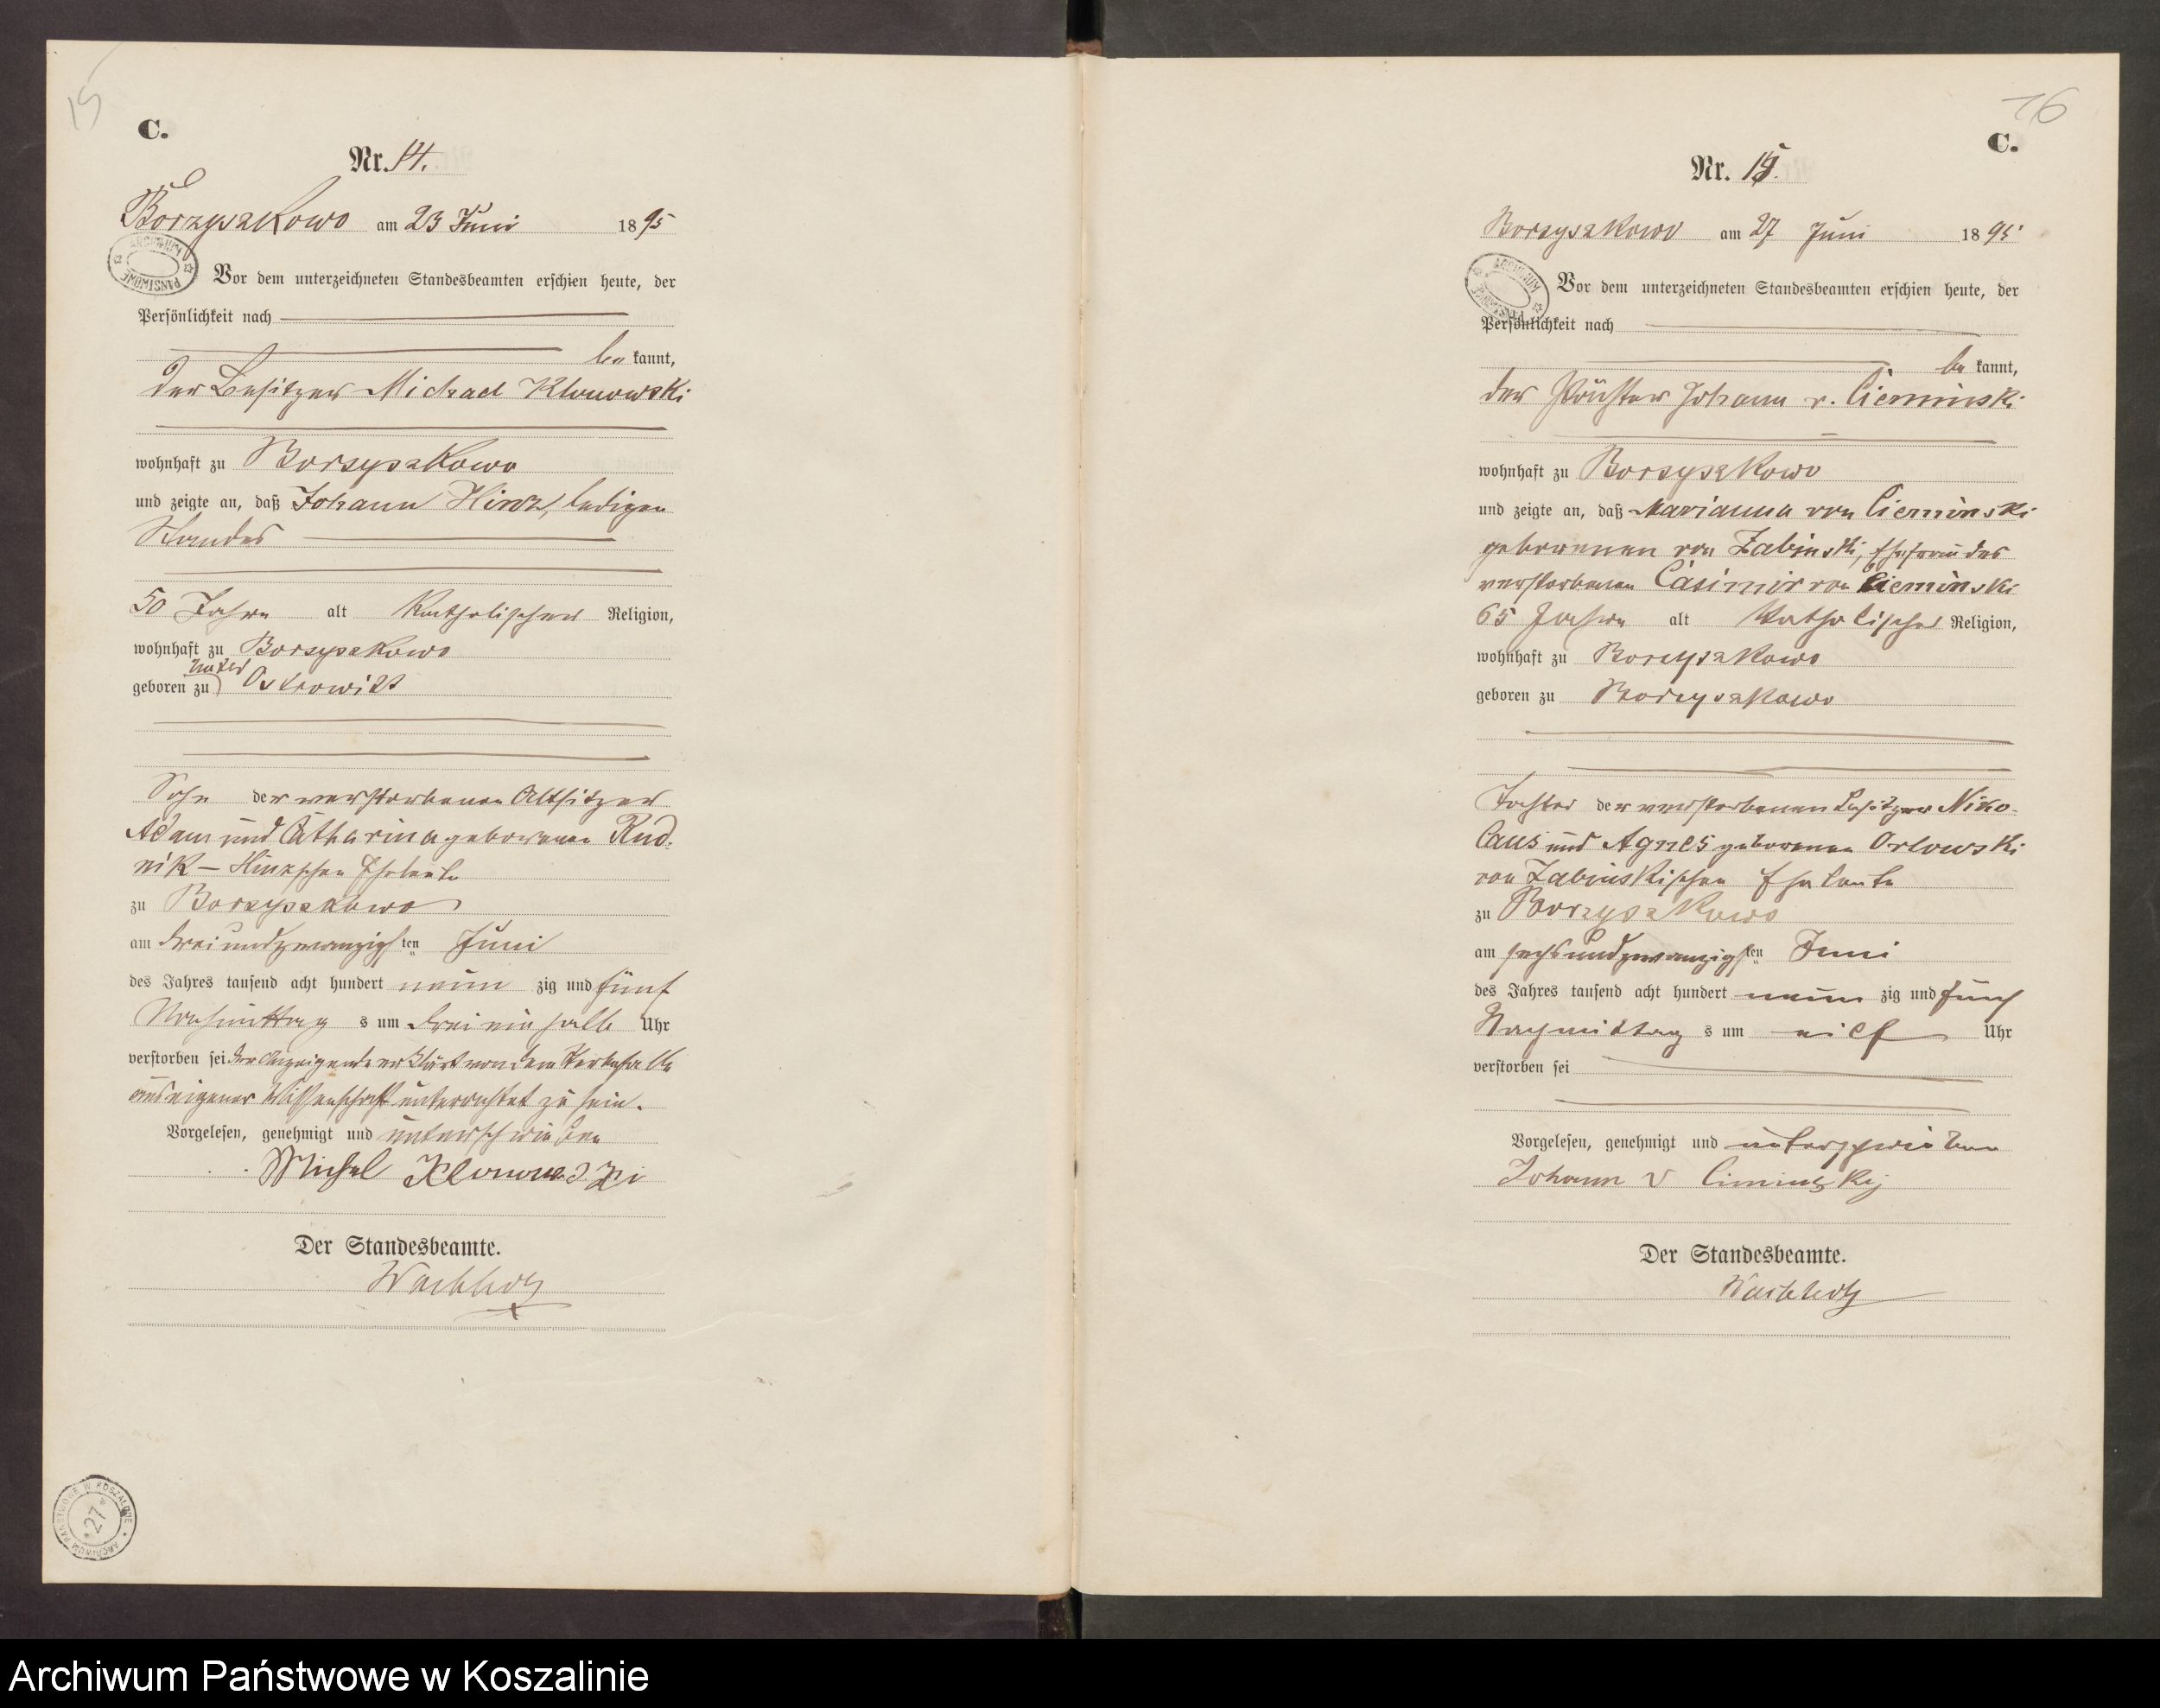 15
C.
Nr. 14.
Borzyszkowo am 23 Juni 1895
ARCHIWUM PAŃSTWOWE
Vor dem unterzeichneten Standesbeamten erschien heute, der
Persönlichkeit nach
bekannt,
der Besitzer Michael Klonowski
wohnhaft zu Borzyszkowo
und zeigte an, daß Johann Hinz, ledigen
Standes
50 Jahre alt katholischer Religion,
wohnhaft zu Borzyszkowo
geboren zu Ostrowitt
Sohn der verstorbenen Altsitzer
Adam und Catharina geborenen Rud-
nik - Hinzschen Eheleute
zu Borzyszkowo
am dreiundzwanzigsten Juni
des Jahres tausend acht hundert neunzig und fünf
Nachmittags um drei ein halb Uhr
verstorben sei. Der Anzeigende erklärt von dem Sterbefalle
aus eigener Wissenschaft unterrichtet zu sein.
Vorgelesen, genehmigt und unterschrieben
Michel Klonowski
Der Standesbeamte.
Wachholz
ARCHIWUM PAŃSTWOWE W KOSZALINIE * 27 *
16
C.
Nr. 15.
Borzyszkowo am 27 Juni 1895
ARCHIWUM PAŃSTWOWE
Vor dem unterzeichneten Standesbeamten erschien heute, der
Persönlichkeit nach
bekannt,
der Johann v. Cieminski
wohnhaft zu Borzyszkowo
und zeigte an, daß Marianna von Cieminski
geborenen von Zabinski, Ehefrau des
verstorbenen Casimir von Cieminski
65 Jahre alt katholischer Religion,
wohnhaft zu Borzyszkowo
geboren zu Borzyszkowo
Tochter der verstorbenen Besitzer Niko-
laus und Agnes geborenen Orlowski
von Zabinskischen Eheleute
zu Borzyszkowo
am sechsundzwanzigsten Juni
des Jahres tausend acht hundert neunzig und fünf
Nachmittags um elf Uhr
verstorben sei
Vorgelesen, genehmigt und unterschrieben
Johann v Ciminskij
Der Standesbeamte.
Wachholz
Archiwum Państwowe w Koszalinie